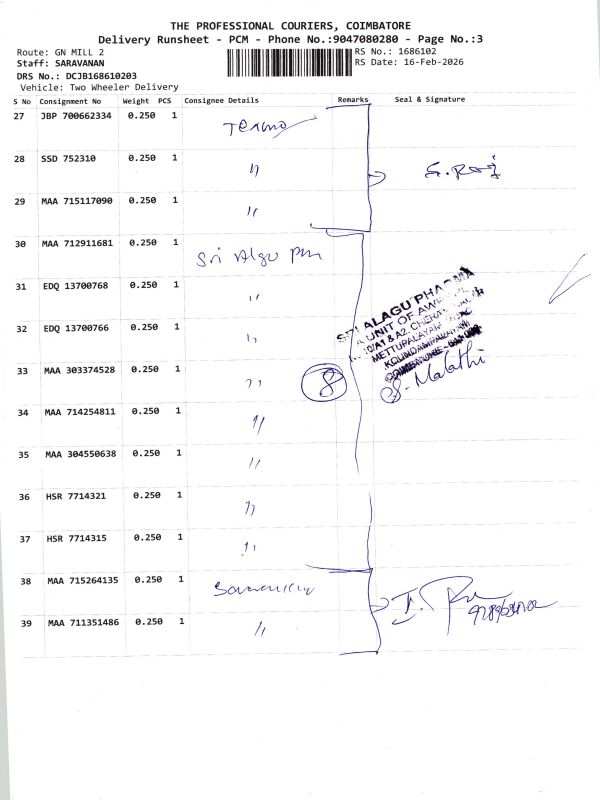 THE PROFESSIONAL COURIERS, COIMBATORE
Delivery Runsheet - PCM - Phone No.:9047080280 - Page No.:3
Route: GN MILL 2
RS No.: 1686102
Staff: SARAVANAN
RS Date: 16-Feb-2026
DRS No.: DCJB168610203
Vehicle: Two Wheeler Delivery
S No Consignment No Weight PCS Consignee Details Remarks Seal & Signature
27 JBP 700662334 0.250 1
28 SSD 752310 0.250 1 "
29 MAA 715117090 0.250 1 "
30 MAA 712911681 0.250 1 Sri Algu
31 EDQ 13700768 0.250 1 "
32 EDQ 13700766 0.250 1 "
33 MAA 303374528 0.250 1 " 8
34 MAA 714254811 0.250 1 "
35 MAA 304550638 0.250 1 "
36 HSR 7714321 0.250 1 "
37 HSR 7714315 0.250 1 "
38 MAA 715264135 0.250 1
39 MAA 711351486 0.250 1 "
SRI ALAGU PHARMA
A UNIT OF
METTUPALAYAM
S. Malathi